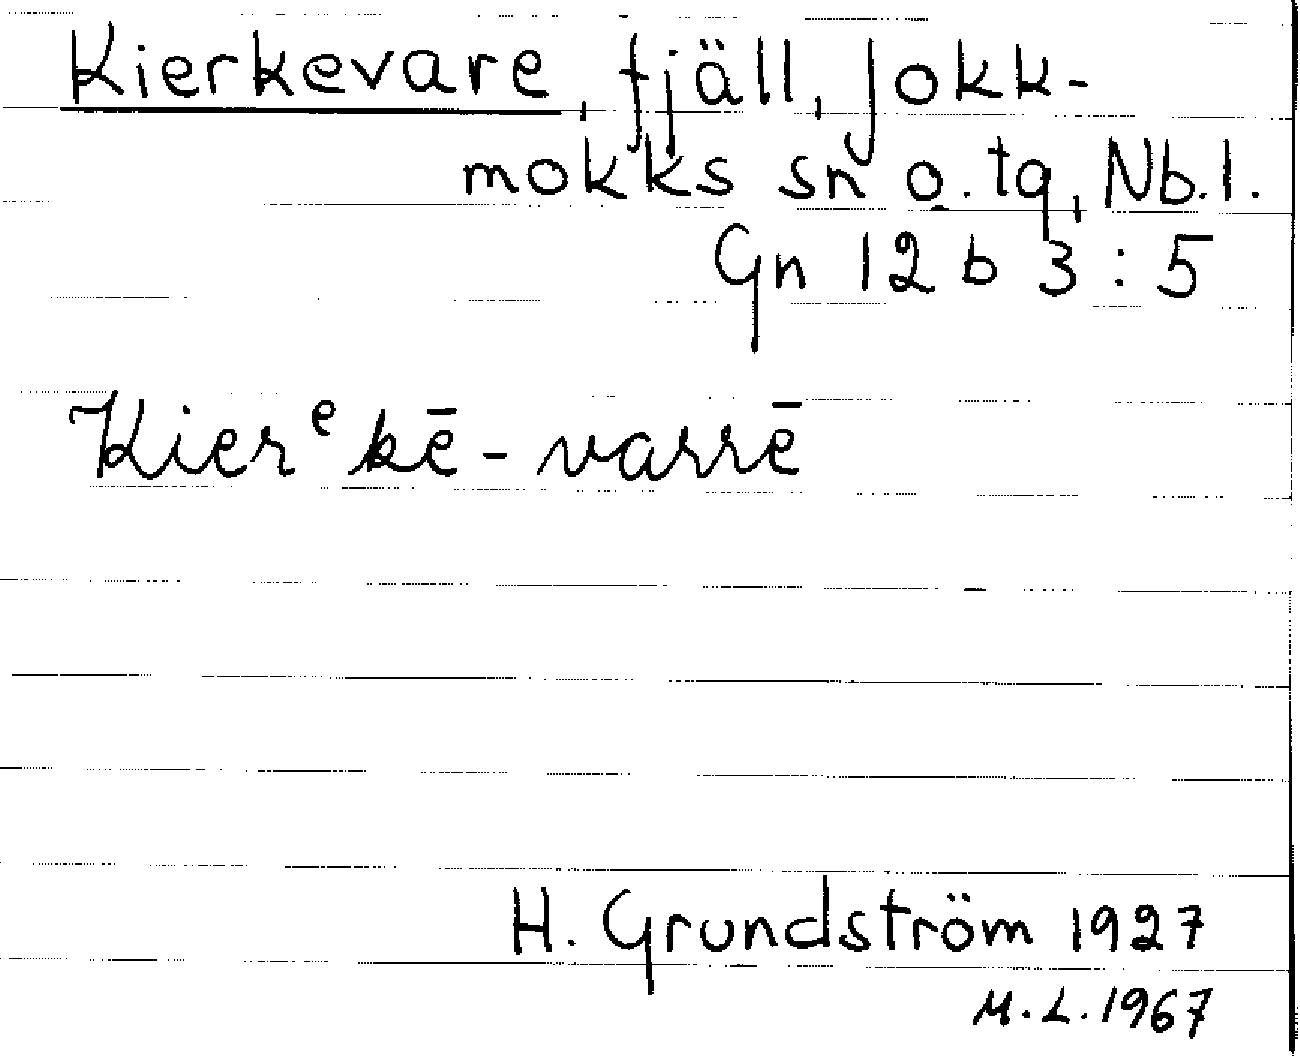 Kierkevare, fjäll, Jokk-
mokks sn o. tg, Nb.l.
Gn 12 b 3 : 5
Kierᵉkē-varrē
H. Grundström 1927
M.L. 1967